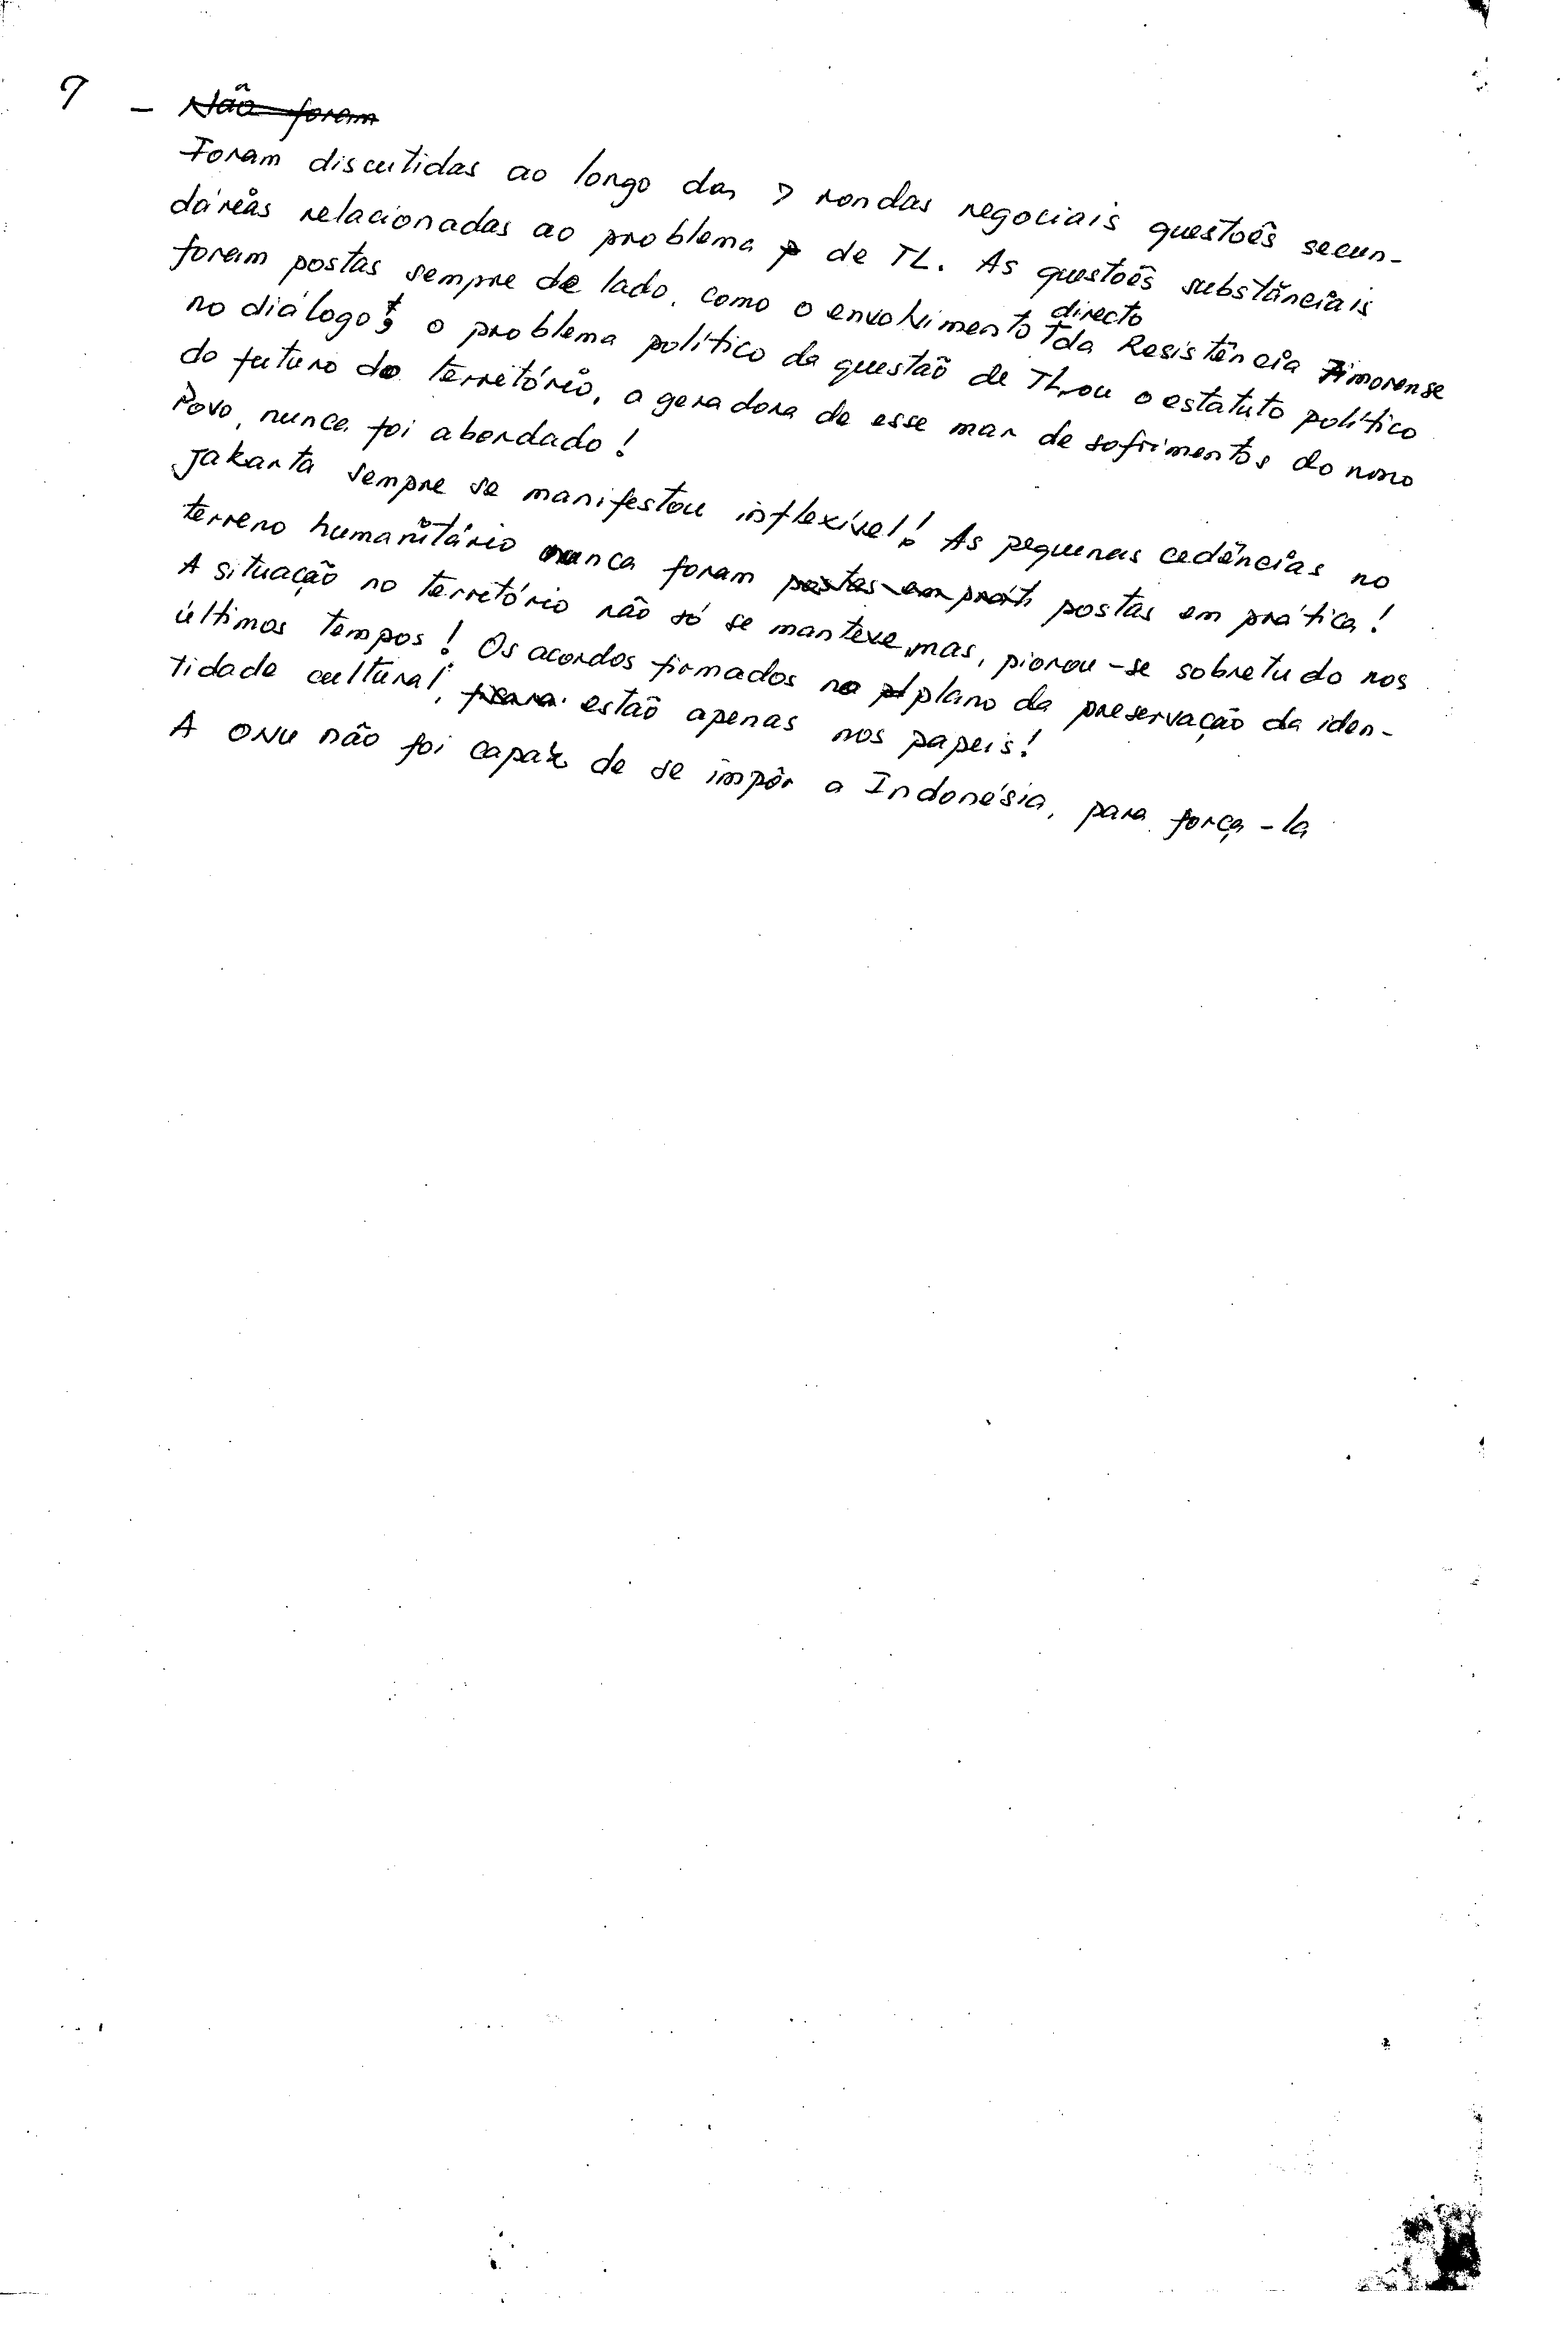 7 - Não foram
Foram discutidas ao longo das 7 rondas negociais questoês secun-
dárias relacionadas ao problema p de TL. As questoês substânciais
foram postas sempre de lado, como o envolvimento directo da Resistência Timorense
no diálogo; o problema político da questaõ de TL, ou o estatuto político
do futuro do território, a geradora de esse mar de sofrimentos do nosso
Povo, nunca foi abordado!
Jakarta sempre se manifestou inflexível! As pequenas cedências no
terreno humanitário nunca foram postas em práti postas em prática!
A situação no território não só se manteve, mas, piorou-se sobretudo nos
últimos tempos! Os acordos firmados no pl plano da preservação da iden-
tidade cultural, estaõ apenas nos papeis!
A ONU não foi capaz de se impôr a Indonésia, para força-la